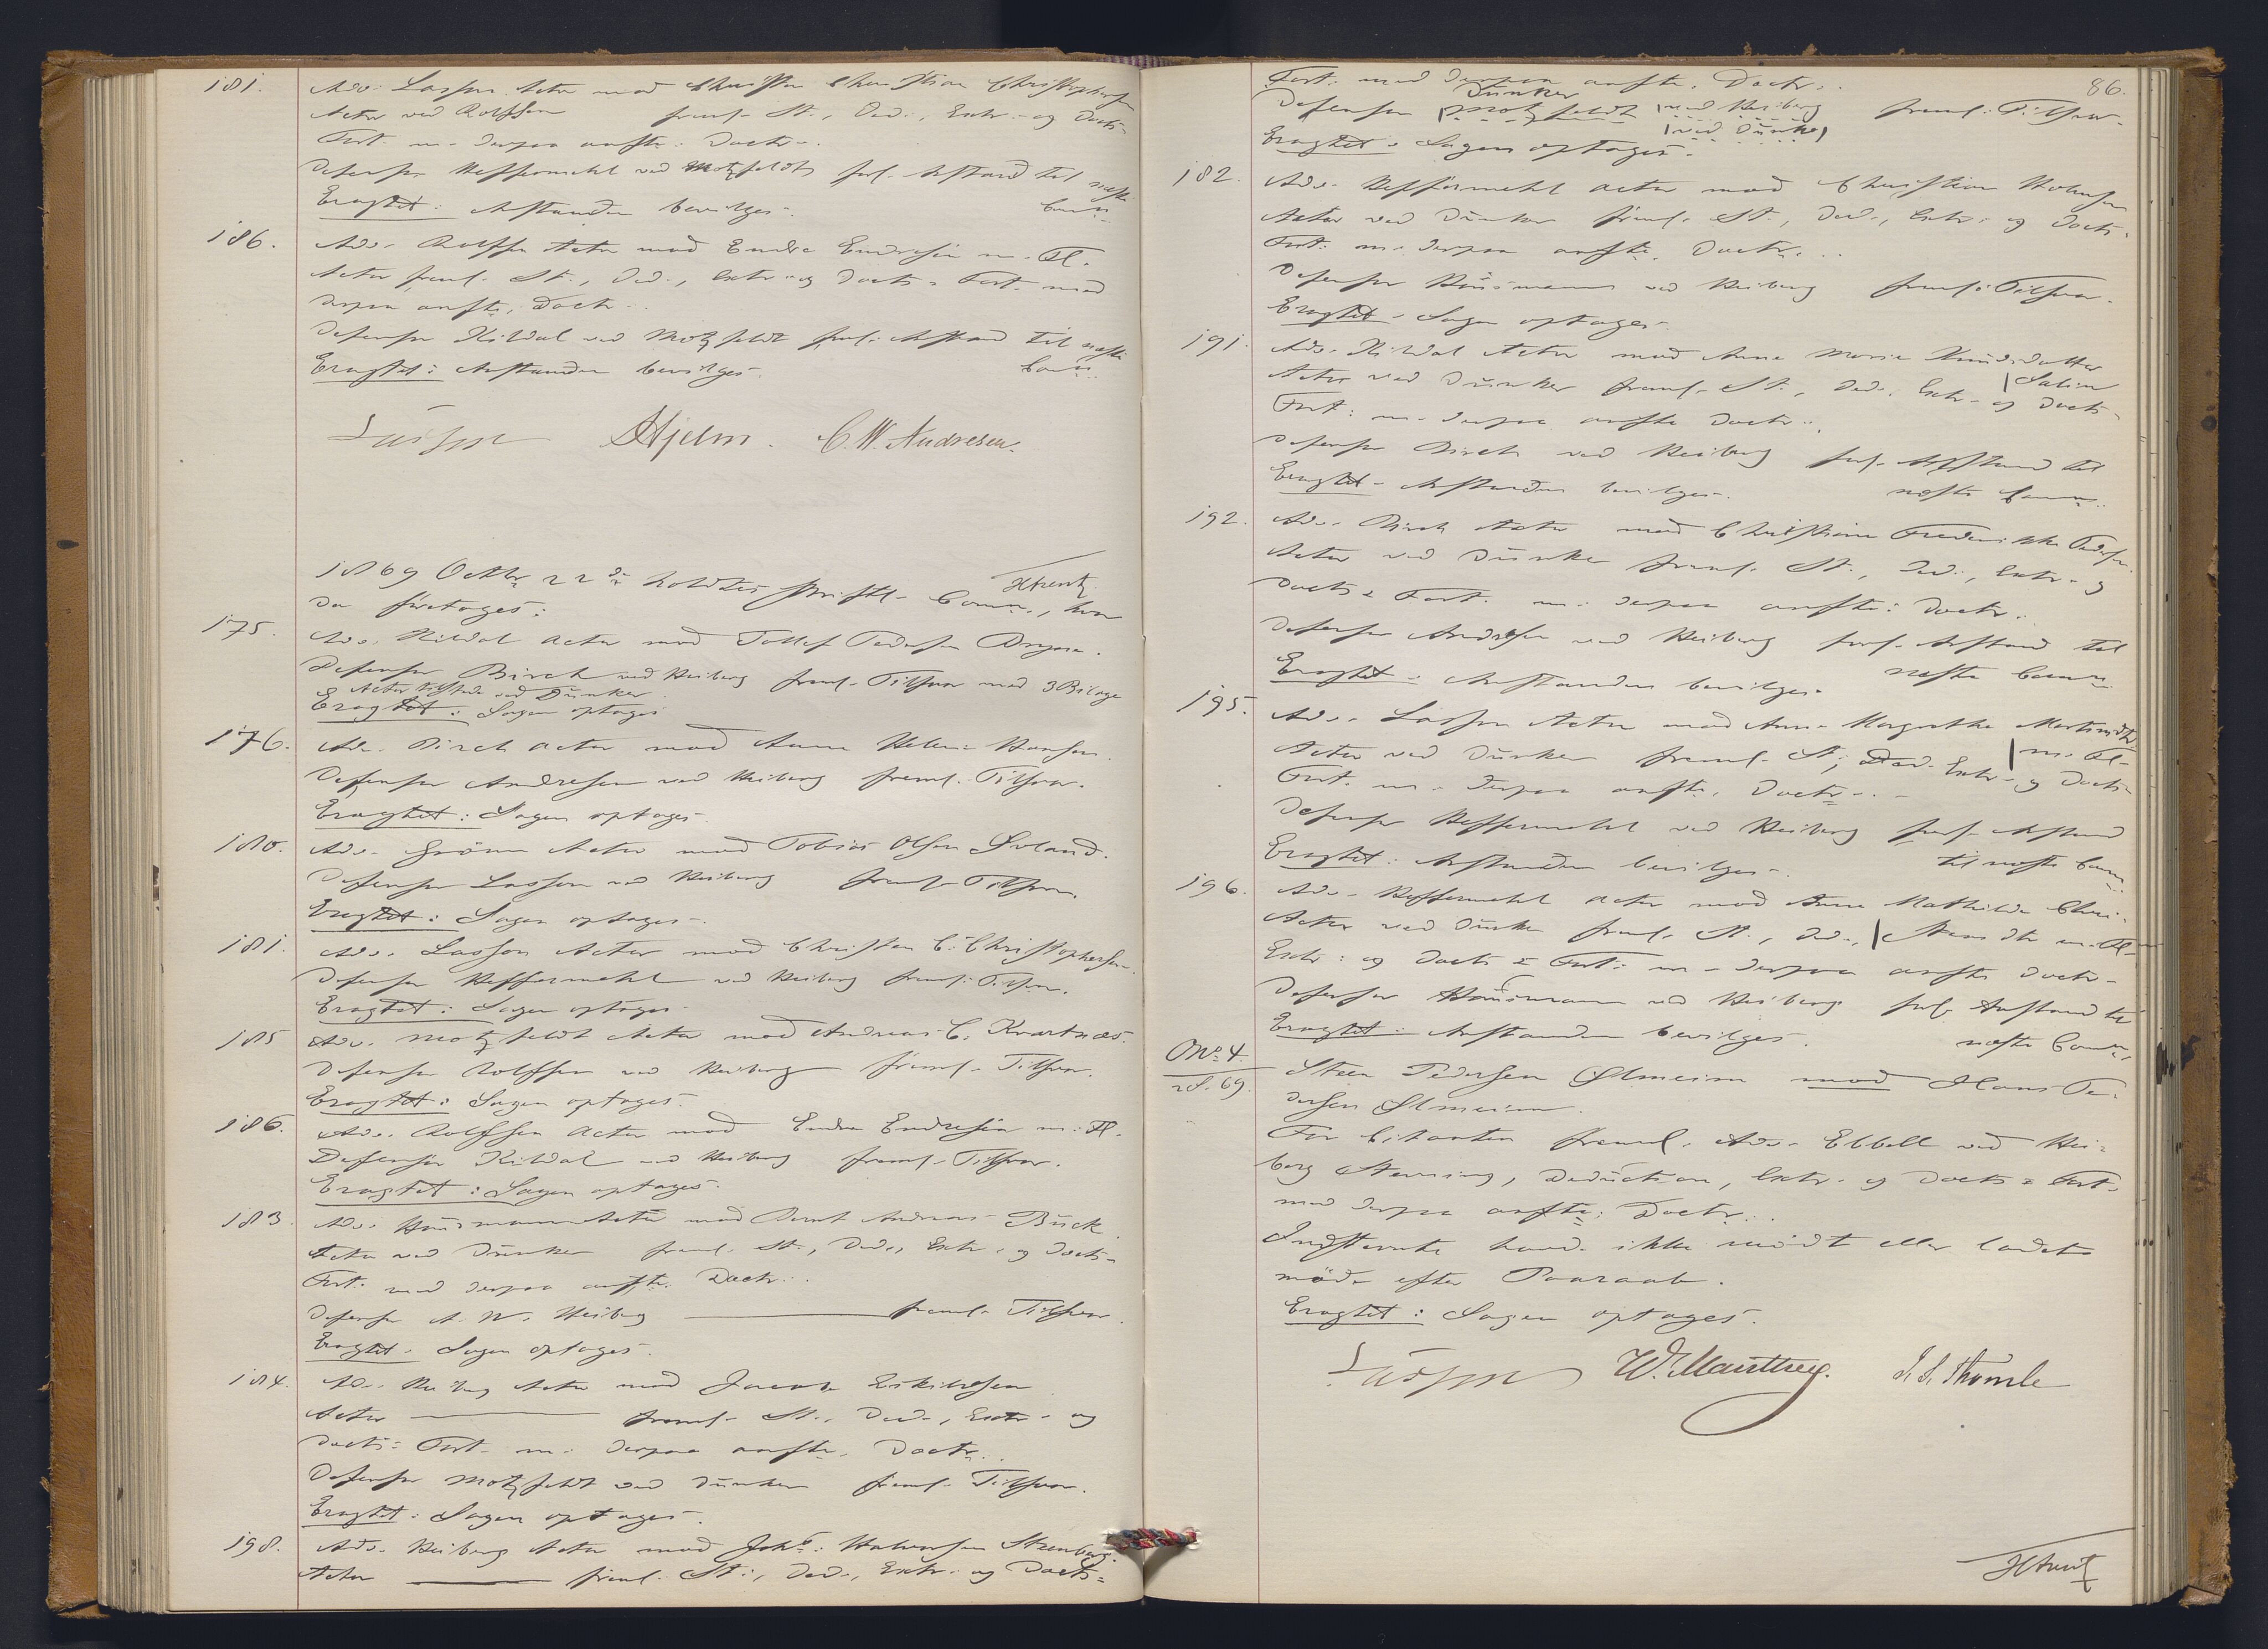 181. Adv. Lasson Actor mod Christen Christian Christophersen
Actor ved Rolfsen freml. St., Ded., Extr. og Doctr.
Fort. m. derpaa anfte. Doctr.
Defensor Heffermehl ved Motzfeldt forl. Anstand til næste
Eragtet: Anstanden bevilges. Comn.
186. Adv. Rolfsen Actor mod Endre Endresen m. Fl.
Actor freml. St., Ded., Extr. og Doctr. Fort. med
derpaa anfte. Doctr.
Defensor Kildal ved Motzfeldt forl. Anstand til næste
Eragtet: Anstanden bevilges. Comn.
Lasson Hjelm. C. W. Andresen.
1869 Octbr. 22de holdtes skriftl. Comn., hvor
da foretoges:
175. Adv. Kildal Actor mod Tollef Pedersen
Defensor Birch ved Heiberg freml. Tilsvar med 3 Bilage
Actor tilstede ved Dunker
Eragtet: Sagen optages
176. Adv. Birch Actor mod Anne Helene Hansen.
Defensor Andresen ved Heiberg freml. Tilsvar.
Eragtet: Sagen optages.
180. Adv. Grönn Actor mod Tobias Olsen Övland.
Defensor Lasson ved Heiberg freml. Tilsvar.
Eragtet: Sagen optages.
181. Adv. Lasson Actor mod Christen C. Christophersen.
Defensor Heffermehl ved Heiberg freml. Tilsvar.
Eragtet: Sagen optages.
185 Adv. Motzfeldt Actor mod Andreas C. Kvartnæs.
Defensor Rolfsen ved Heiberg freml. Tilsvar.
Eragtet: Sagen optages.
186. Adv. Rolfsen Actor mod Endre Endresen m. Fl.
Defensor Kildal ved Heiberg freml. Tilsvar.
Eragtet: Sagen optages.
183. Adv. Hansmann Actor mod Bernt Andreas Buck
Actor ved Dunker freml. St., Ded., Extr. og Doctr.
Fort. med derpaa anfte. Doctr.
Defensor A. W. Heiberg freml. Tilsvar.
Eragtet. Sagen optages.
184. Adv. Heiberg Actor mod Jacob Eskildsen
Actor freml. St., Ded., Extr. og
Doctr. Fort. m. derpaa anfte. Doctr.
Defensor Motzfeldt ved Dunker freml. Tilsvar.
Eragtet: Sagen optages.
198. Adv. Heiberg Actor mod Johs: Halvorsen Steenberg.
Actor freml. St., Ded., Extr. og Doctr.
86.
Fort. med derpaa anfte. Doctr.
Dunker
Defensor (Motzfeldt) (ved Heiberg) freml. Tilsvar.
(ved Dunker)
Eragtet: Sagen optages.
182. Adv. Heffermehl Actor mod Christian
Actor ved Dunker freml. St., Ded., Extr. og Doctr.
Fort. m. derpaa anfte. Doctr.
Defensor Hansmann ved Heiberg freml. Tilsvar.
Eragtet. Sagen optages.
191. Adv. Kildal Actor mod Anne Marie Knudsdatter
Actor ved Dunker freml. St., Ded., Extr. og Doctr.
Fort. m. derpaa anfte Doctr.
Defensor Birch ved Heiberg forl. Anstand til
Eragtet. Anstanden bevilges. næste Comn.
192. Adv. Birch Actor mod Christiane Frederikke Pedersen.
Actor ved Dunker freml. St., Ded., Extr. og
Doctr. Fort. m. derpaa anfte. Doctr.
Defensor Andresen ved Heiberg forl. Anstand til
Eragtet: Anstanden bevilges. næste Comn.
195. Adv. Lasson Actor mod Anne Margrethe Martinsdtr
Actor ved Dunker freml. St., Ded. Extr. og Doctr. |m. Fl.
Fort. m. derpaa anfte. Doctr.
Defensor Heffermehl ved Heiberg forl. Anstand
Eragtet: Anstanden bevilges. til næste Comn.
196. Adv. Heffermehl Actor mod Anne Mathilde
Actor ved Dunker freml. St., Ded., m. Fl.
Extr. og Doctr. Fort. m. derpaa anfte Doctr.
Defensor Hansmann ved Heiberg forl. Anstand til
Eragtet: Anstanden bevilges. næste Comn.
No. 4.
2S. 69. Steen Pedersen Olmeim mod Hans Pe-
dersen Olmeim.
For Citanten freml. Adv. Ebbell ved Hei-
berg Stevning, Deduction, Extr. og Doctr. Fort.
med derpaa anfte. Doctr.
Indstevnte havde ikke mödt eller ladet
möde efter Paaraab.
Eragtet: Sagen optages.
Lasson W. Manthey. J. S. Thomle